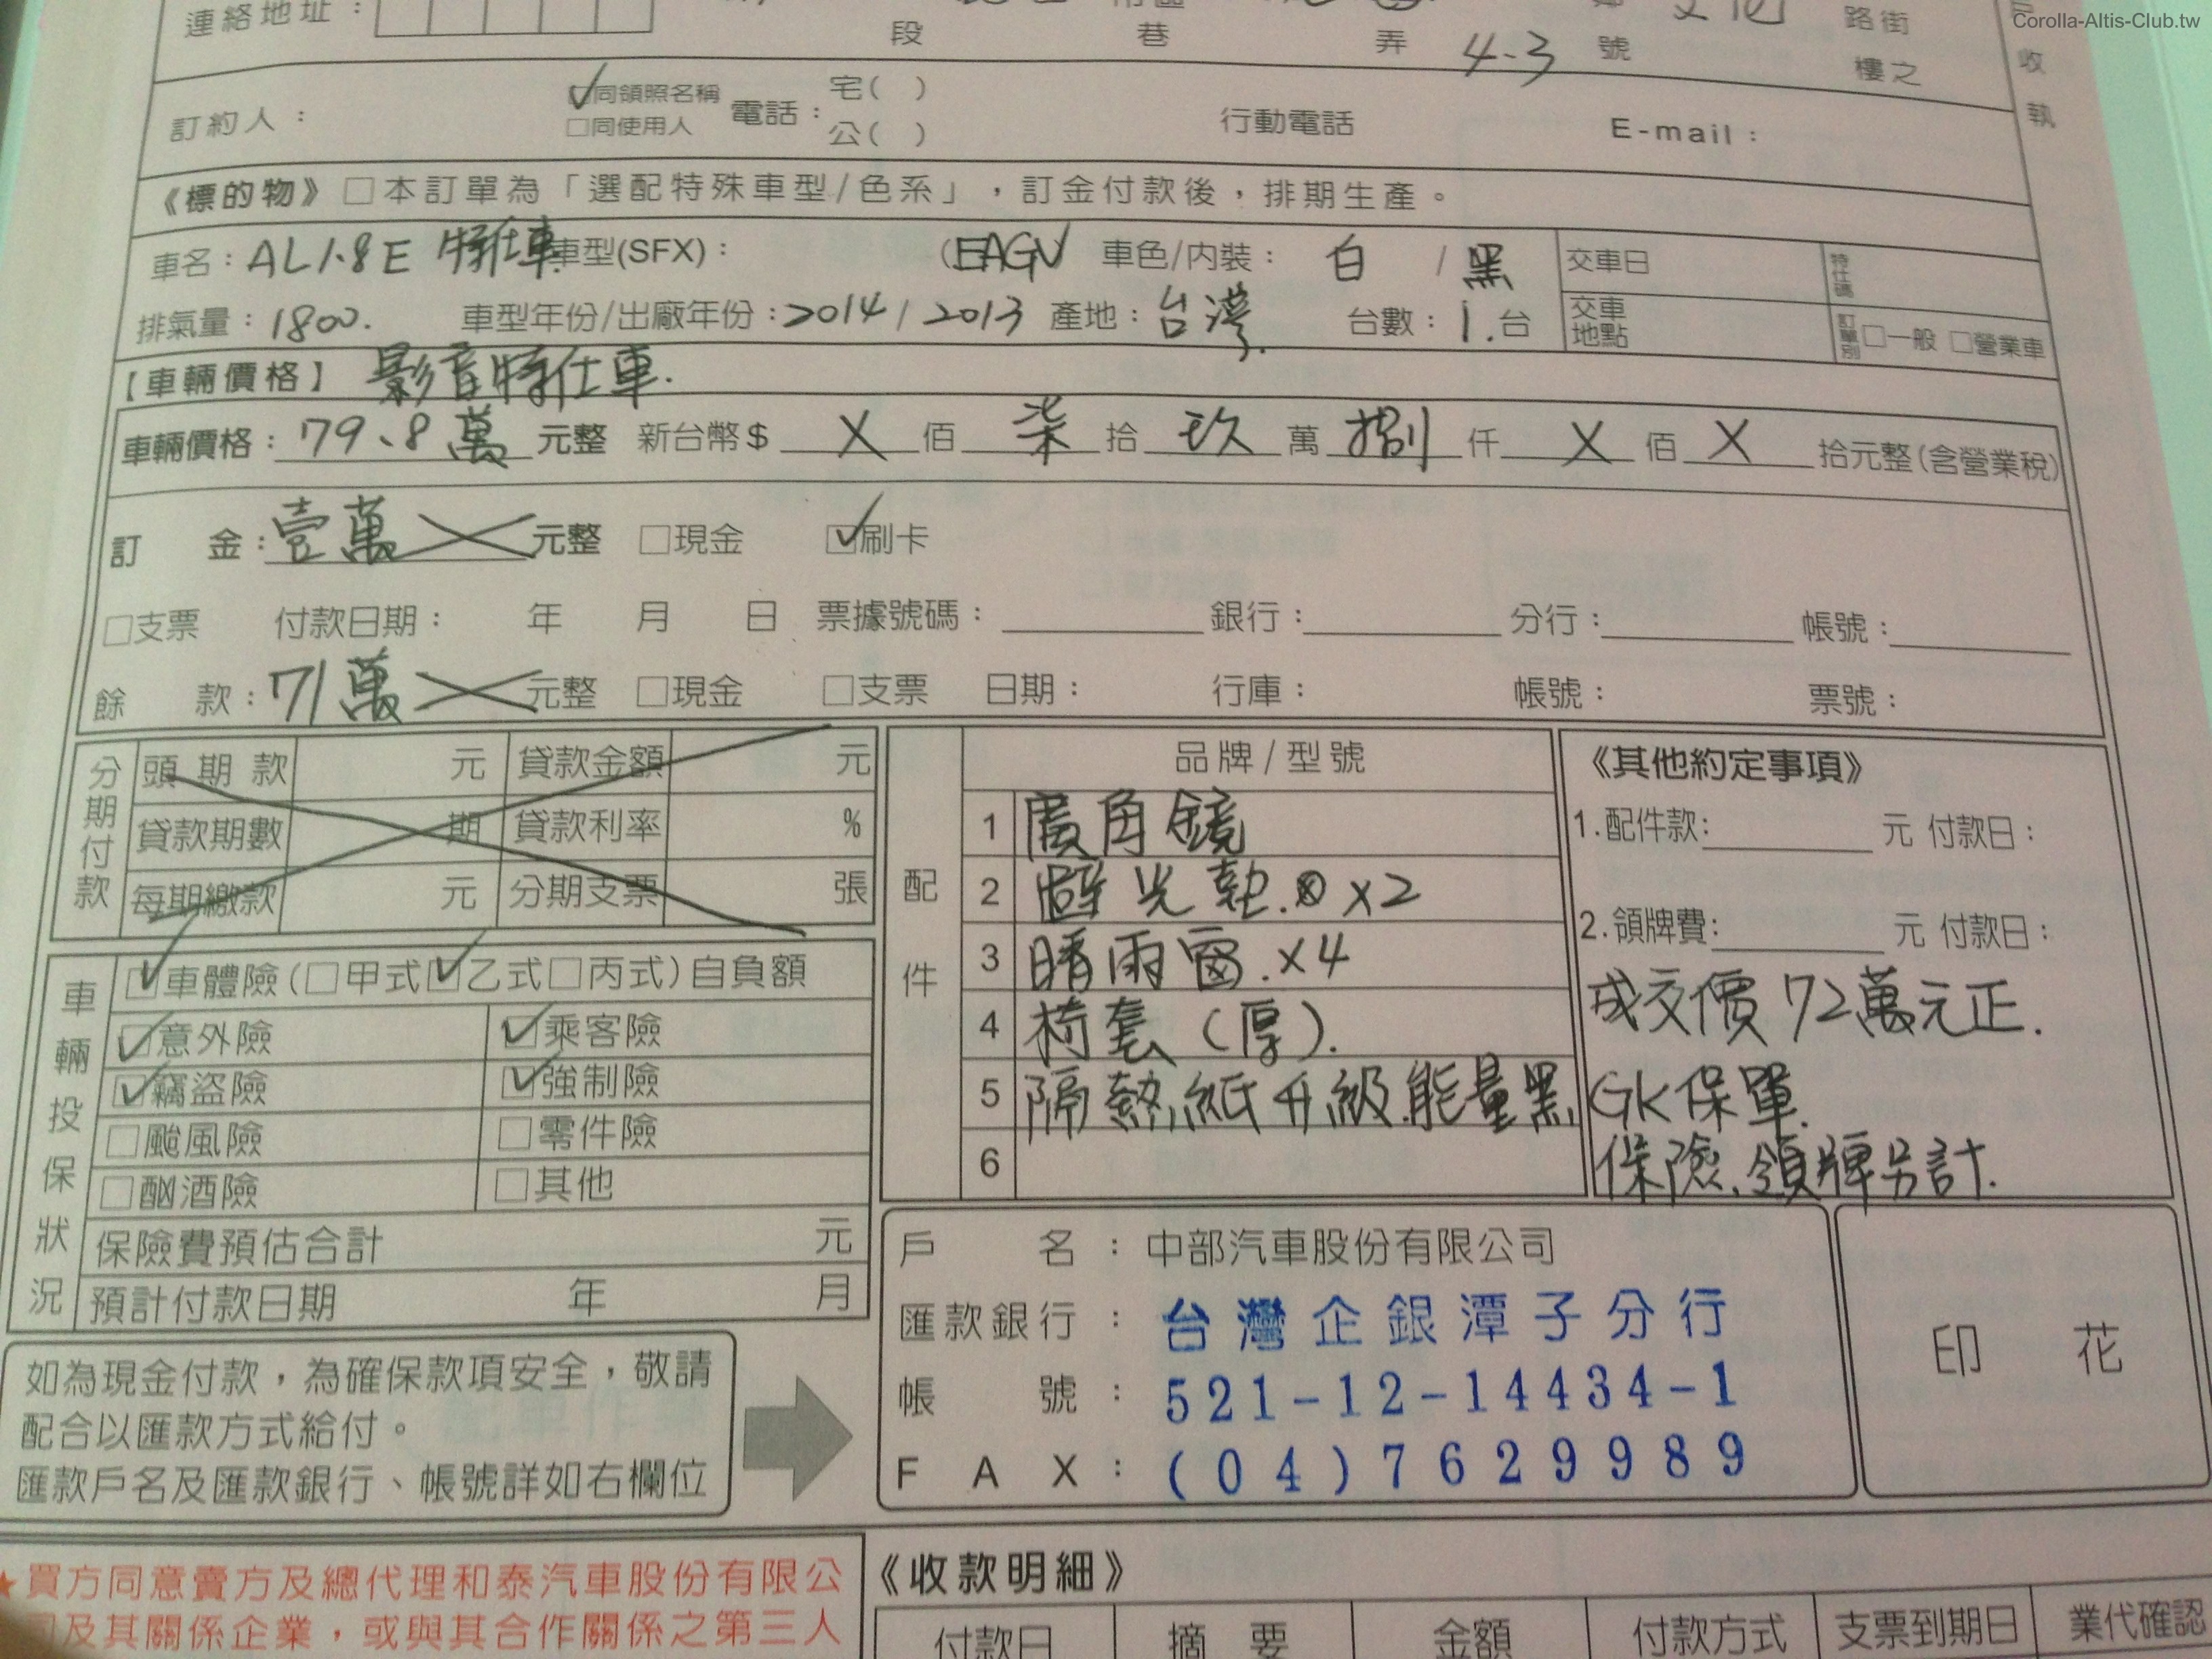 Corolla-Altis-Club.tw
連絡地址：
段 巷 弄 4-3 號 路街
樓之
收
執
訂約人： ☑同領照名稱 電話： 宅( )
□同使用人 公( ) 行動電話 E-mail：
《標的物》□本訂單為「選配特殊車型/色系」，訂金付款後，排期生產。
車名：AL1.8E 特仕車 車型(SFX)： (EAGV) 車色/內裝： 白 / 黑 交車日 特仕碼
排氣量：1800. 車型年份/出廠年份：2014 / 2013 產地：台灣. 台數：1.台 交車地點 訂單別 □一般 □營業車
【車輛價格】 影音特仕車.
車輛價格：79.8萬 元整 新台幣$ X 佰 柒 拾 玖 萬 捌 仟 X 佰 X 拾元整(含營業稅)
訂 金：壹萬 元整 □現金 ☑刷卡
□支票 付款日期： 年 月 日 票據號碼： 銀行： 分行： 帳號：
餘 款：71萬 元整 □現金 □支票 日期： 行庫： 帳號： 票號：
分期付款
頭期款 元 貸款金額 元
貸款期數 期 貸款利率 %
每期繳款 元 分期支票 張
車輛投保狀況
☑車體險(□甲式☑乙式□丙式)自負額
☑意外險 ☑乘客險
☑竊盜險 ☑強制險
□颱風險 □零件險
□酗酒險 □其他
保險費預估合計 元
預計付款日期 年 月
配件
品牌/型號
1 廣角鏡
2 避光墊. x2
3 晴雨窗.x4
4 椅套(厚).
5 隔熱紙升級.能量黑
6
《其他約定事項》
1.配件款： 元 付款日：
2.領牌費： 元 付款日：
成交價72萬元正.
GK保單.
保險.領牌另計.
如為現金付款，為確保款項安全，敬請
配合以匯款方式給付。
匯款戶名及匯款銀行、帳號詳如右欄位
戶 名：中部汽車股份有限公司
匯款銀行：台灣企銀潭子分行
帳 號：521-12-14434-1
FAX：(04)7629989
印 花
★買方同意賣方及總代理和泰汽車股份有限公
司及其關係企業，或與其合作關係之第三人
《收款明細》
付款日 摘 要 金額 付款方式 支票到期日 業代確認